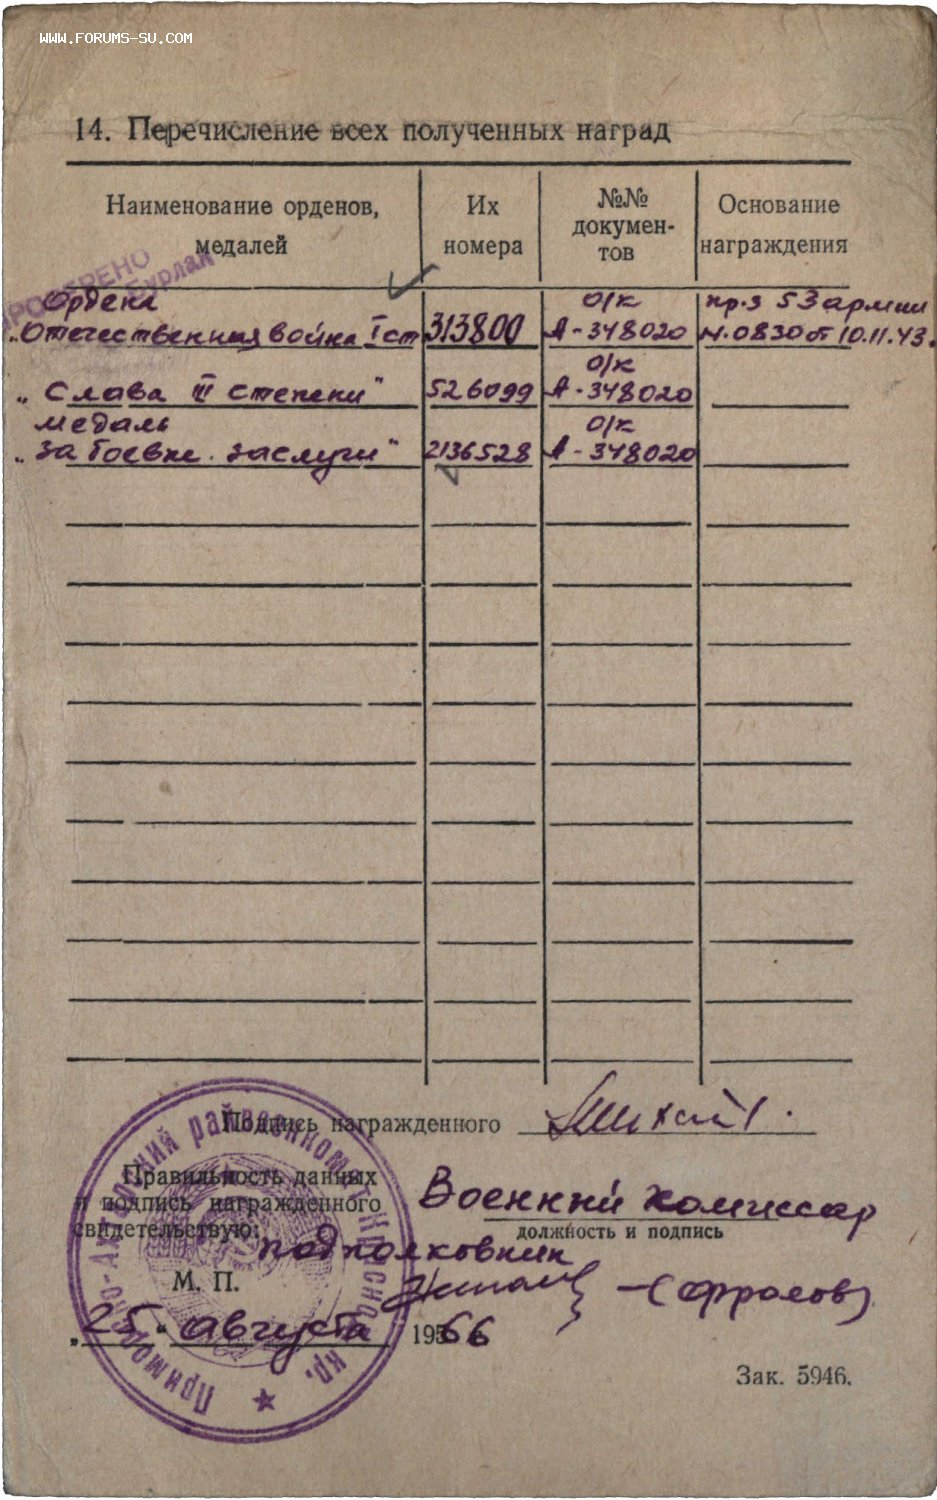 WWW.FORUMS-SU.COM
14. Перечисление всех полученных наград
Наименование орденов, медалей
Их номера
№№ докумен-тов
Основание награждения
ПРОВЕРЕНО
Бурлак
Ордена о/к пр-з 53 армии
„Отечественная война I ст 313800 А-348020 № 0830 от 10.11.43.
о/к
„Слава III степени" 526099 А-348020
медаль о/к
„За боевые заслуги" 2136528 А-348020
Подпись награжденного
Правильность данных
и подпись награжденного
свидетельствую:
Военный комиссар
должность и подпись
подполковник
М. П.
(Фролов)
„25" августа 1966
Зак. 5946.
Приморско-Ахтарский райвоенкомат Красно кр.